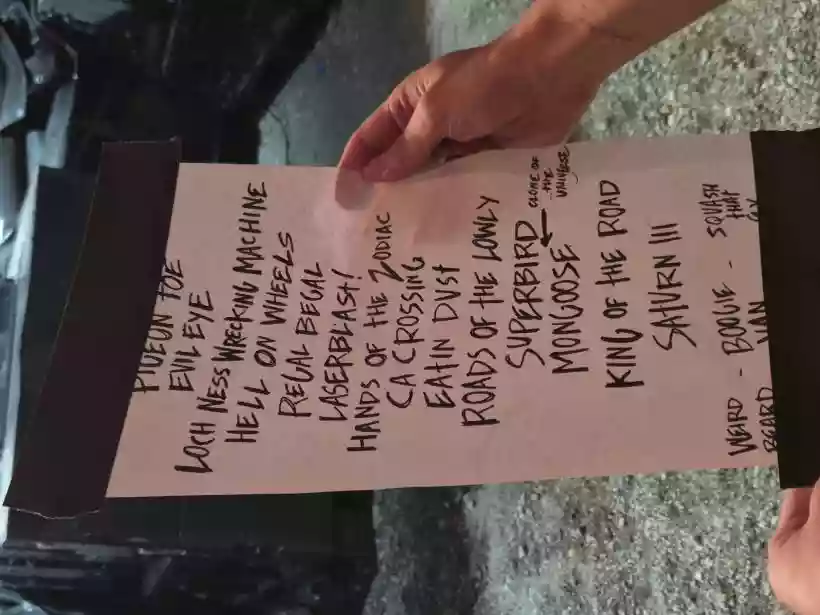 PIGEON TOE
EVIL EYE
LOCH NESS WRECKING MACHINE
HELL ON WHEELS
REGAL BEGAL
LASERBLAST!
HANDS OF THE ZODIAC
CA CROSSING
EATIN DUST
ROADS OF THE LOWLY
SUPERBIRD
CLONE OF
THE
UNIVERSE
MONGOOSE
KING OF THE ROAD
SATURN III
WEIRD - BOOGIE - SQUASH
THAT
BEARD VAN FLY